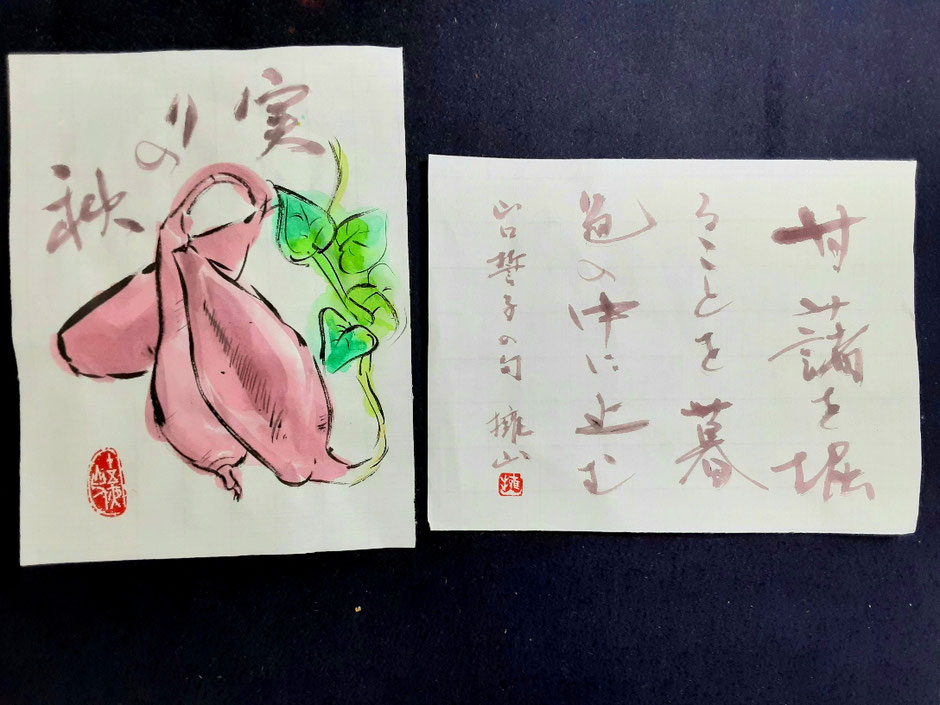 実りの秋
甘藷を堀
ることを暮
色の中に止む
山口誓子の句 擁山